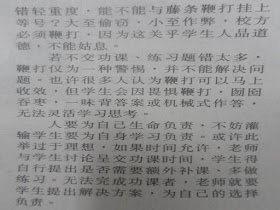 错轻重度，能不能与藤条鞭打挂上
等号？大至偷窃，小至作弊，校方
必须鞭打，因为这关乎学生人品道
德，不能姑息。
若不交功课、练习题错太多，
鞭打仅为一种警惕，并不能解决问
题。也许很多人认为鞭打可以马上
收效，但学生会因畏惧鞭打，囫囵
吞枣，一味背答案或机械式作答，
无法灵活学习思考。
人要为自己生命负责，不妨灌
输学生要为自身学习负责。或许此
举过于理想，如果时间允许，老师
与学生讨论呈交功课时间，学生得
自行提出是否需要额外补课、多做
练习。无法完成功课者，老师就要
学生提出解决方案，为自己的选择
负责。